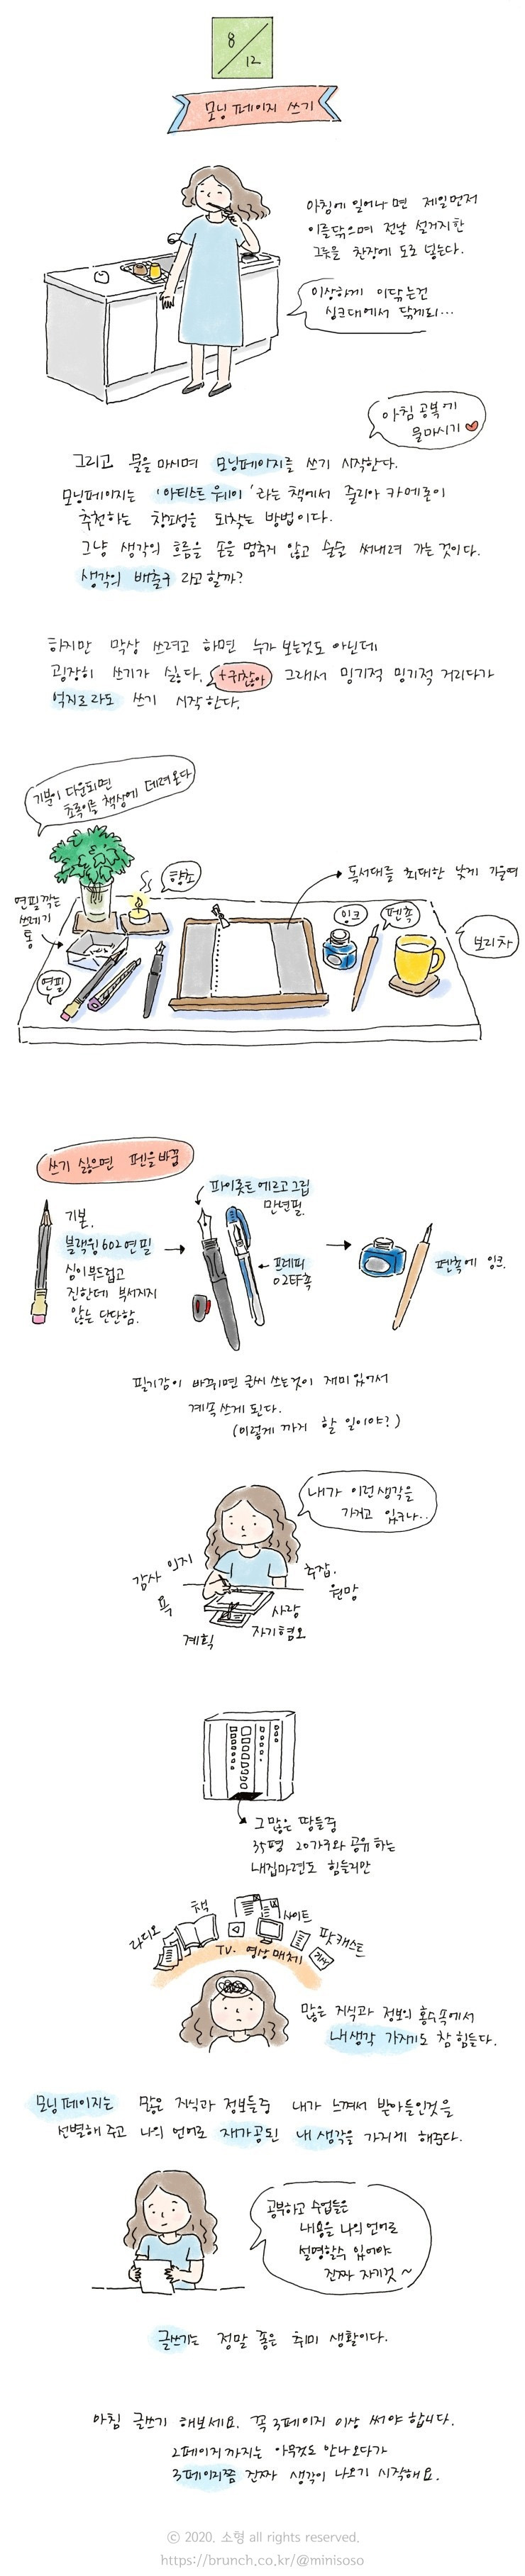 8
12
모닝 페이지 쓰기
아침에 일어나면 제일먼저
이를닦으며 전날 설거지한
그릇을 찬장에 도로 넣는다.
이상하게 이닦는건
싱크대에서 닦게돼...
아침 공복에
물마시기
그리고 물을 마시며 모닝페이지를 쓰기 시작한다.
모닝페이지는 '아티스트 웨이' 라는 책에서 줄리아 카메론이
추천하는 창조성을 되찾는 방법이다.
그냥 생각의 흐름을 손을 멈추지 않고 술술 써내려 가는 것이다.
생각의 배출구 라고 할까?
하지만 막상 쓰려고 하면 누가 보는것도 아닌데
굉장히 쓰기가 싫다. +귀찮아 그래서 밍기적 밍기적 거리다가
억지로라도 쓰기 시작한다.
기분이 다운되면
초록이를 책상에 데려온다
연필깎는
쓰레기
통
향초
독서대를 최대한 낮게 기울여
잉크
펜촉
보리차
연필
쓰기 싫으면 펜을바꿈
기본.
블랙윙602연필
심이부드럽고
진한데 부서지지
않는 단단함.
파이롯트에르고그립
만년필.
프레피
02EF촉
펜촉에 잉크.
필기감이 바뀌면 글씨 쓰는것이 재미있어서
계속쓰게 된다.
(이렇게 까지 할 일이야?)
내가 이런생각을
가지고 있구나..
감사
의지
욕
계획
사랑
자기혐오
추잡.
원망
그많은 땅들중
35평 20가구와 공유하는
내집마련도 힘들지만
라디오
책
사이트
팟캐스트
TV. 영상매체
많은 지식과 정보의 홍수속에서
내생각 가지기도 참 힘들다.
모닝페이지는 많은 지식과 정보들중 내가 느껴서 받아들인것을
선별해 주고 나의 언어로 재가공된 내 생각을 가지게 해준다.
공부하고 수업들은
내용을 나의언어로
설명할수 있어야
진짜 자기것~
글쓰기는 정말 좋은 취미 생활이다.
아침 글쓰기 해보세요. 꼭 3페이지 이상 써야 합니다.
2페이지 까지는 아무것도 안나오다가
3페이지쯤 진짜 생각이 나오기 시작해요.
© 2020. 소형 all rights reserved.
https://brunch.co.kr/@minisoso